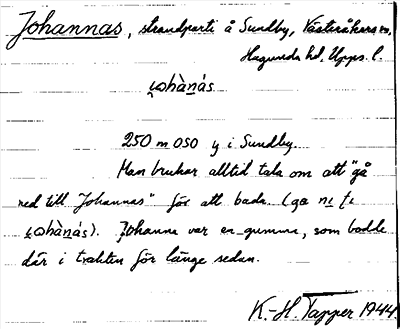 Johannas, strandparti å Sundby, Västeråkers sn,
Hagunda hd, Upps. l.
ɯohànás
250 m OSO ɥ i Sundby.
Man brukar alltid tala om att "gå
ned till Johannas" för att bada. (gɑ ni ti
ɯohànás). Johanna var en gumma, som bodde
där i trakten för länge sedan.
K.-H. Tapper 1944.